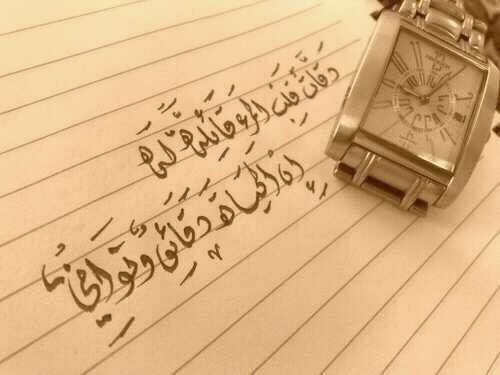 دَقَّاتُ قَلبِ المَرءِ قَائِلَةٌ لَهُ
إنَّ الحَيَاةَ دَقَائِقٌ وَثَوَانِي